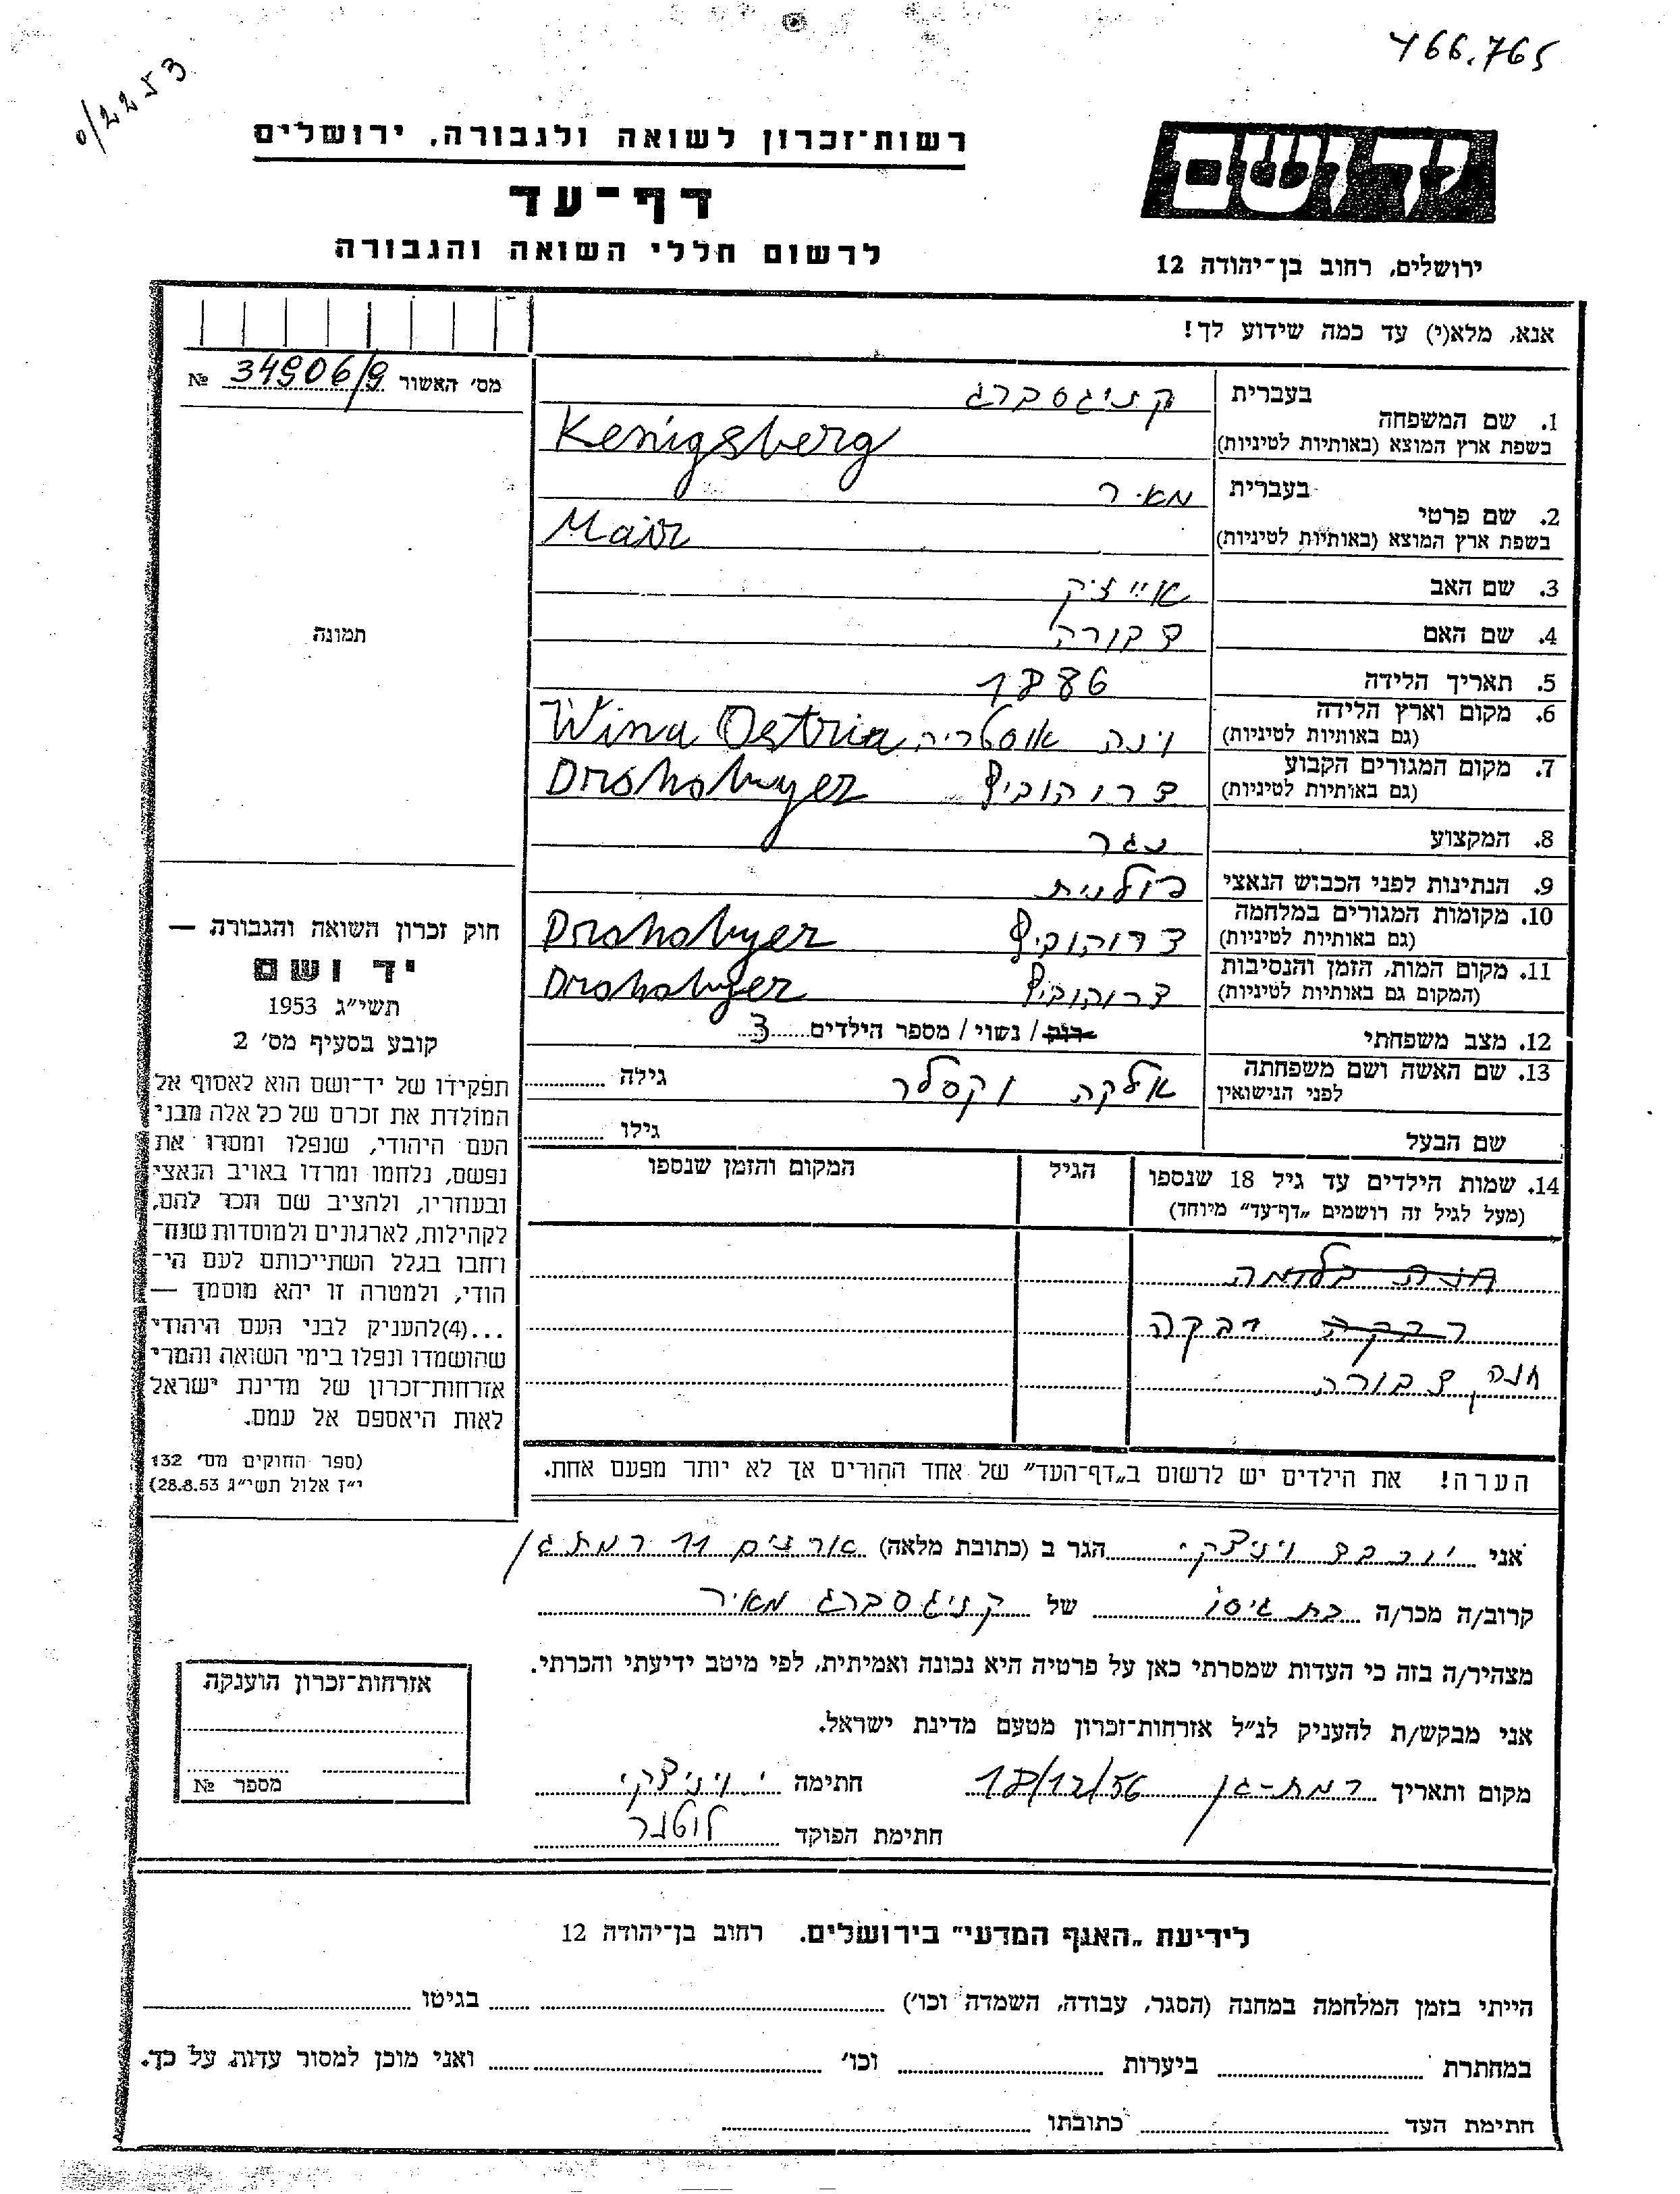 466.765
0/2253
רשות־זכרון לשואה ולגבורה, ירושלים
יד ושם
דף־עד
לרשום חללי השואה והגבורה
ירושלים, רחוב בן־יהודה 12
אנא, מלא(י) עד כמה שידוע לך!
מס׳ האשור 34906/9 №
1. שם המשפחה
בעברית קניגסברג
בשפת ארץ המוצא (באותיות לטיניות) Kenigsberg
2. שם פרטי
בעברית מאיר
בשפת ארץ המוצא (באותיות לטיניות) Mair
3. שם האב אייזק
4. שם האם דבורה
תמונה
5. תאריך הלידה 1886
6. מקום וארץ הלידה
(גם באותיות לטיניות) וינה אוסטריה Wina Oestria
7. מקום המגורים הקבוע
(גם באותיות לטיניות) דרוהוביץ Drohobyer
8. המקצוע נגר
9. הנתינות לפני הכבוש הנאצי פולנית
10. מקומות המגורים במלחמה
(גם באותיות לטיניות) דרוהוביץ Drohobyer
11. מקום המות, הזמן והנסיבות
(המקום גם באותיות לטיניות) דרוהוביץ Drohobyer
12. מצב משפחתי רוק / נשוי / מספר הילדים 3
13. שם האשה ושם משפחתה
לפני הנישואין אלקה וקסלר גילה
שם הבעל גילו
14. שמות הילדים עד גיל 18 שנספו
(מעל לגיל זה רושמים „דף־עד״ מיוחד)
הגיל
המקום והזמן שנספו
רבקה רבקה
חנה דבורה
הערה! את הילדים יש לרשום ב„דף־העד״ של אחד ההורים אך לא יותר מפעם אחת.
חוק זכרון השואה והגבורה —
יד ושם
תשי״ג 1953
קובע בסעיף מס׳ 2
תפקידו של יד־ושם הוא לאסוף אל
המולדת את זכרם של כל אלה מבני
העם היהודי, שנפלו ומסרו את
נפשם, נלחמו ומרדו באויב הנאצי
ובעוזריו, ולהציב שם וזכר להם,
לקהילות, לארגונים ולמוסדות שנח־
רחבו בגלל השתייכותם לעם הי־
הודי, ולמטרה זו יהא מוסמך —
...(4)להעניק לבני העם היהודי
שהושמדו ונפלו בימי השואה והמרי
אזרחות־זכרון של מדינת ישראל
לאות היאספם אל עמם.
(ספר החוקים מס׳ 132
י״ז אלול תשי״ג 28.8.53)
אני יוכבד ויניצקי הגר ב (כתובת מלאה) ארנים 11 רמת גן
קרוב/ה מכר/ה בת גיסו של קניגסברג מאיר
מצהיר/ה בזה כי העדות שמסרתי כאן על פרטיה היא נכונה ואמיתית, לפי מיטב ידיעתי והכרתי.
אני מבקש/ת להעניק לנ״ל אזרחות־זכרון מטעם מדינת ישראל.
מקום ותאריך רמת-גן 18/12/56 חתימה י ויניצקי
חתימת הפוקד לוטנר
אזרחות־זכרון הוענקה
מספר №
לידיעת „האגף המדעי״ בירושלים, רחוב בן־יהודה 12
הייתי בזמן המלחמה במחנה (הסגר, עבודה, השמדה וכו׳) בגיטו
במחתרת ביערות וכו׳ ואני מוכן למסור עדות על כך.
חתימת העד כתובתו